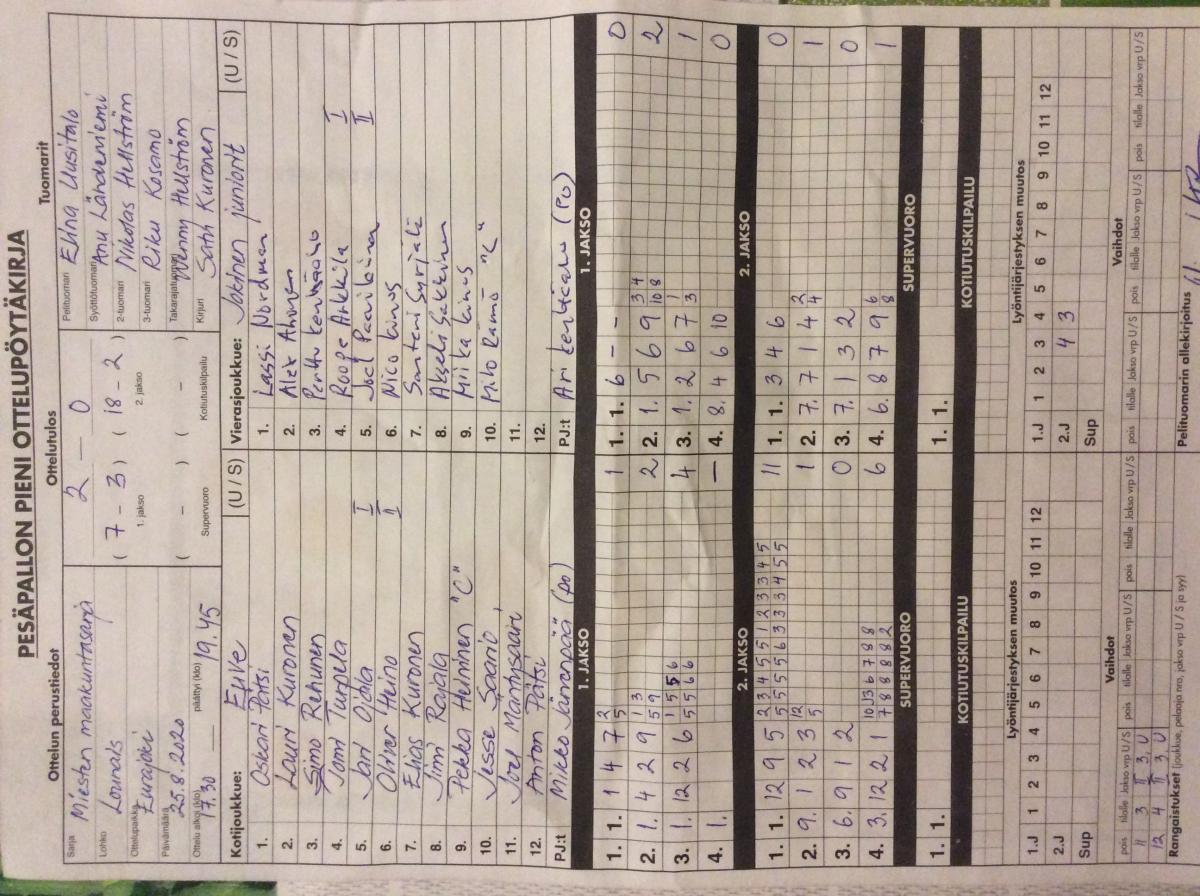 PESÄPALLON PIENI OTTELUPÖYTÄKIRJA
Ottelun perustiedot
Sarja Miesten maakuntasarja
Lohko Lounais
Ottelupaikka Eurajoki
Päivämäärä 25.8.2020
Ottelu alkoi (klo) 17.30 päättyi (klo) 19.45
Ottelutulos
2 — 0
( 7 - 3 ) ( 18 - 2 )
1. jakso 2. jakso
( - ) ( - )
Supervuoro Kotiutuskilpailu
Tuomarit
Pelituomari Elina Uusitalo
Syöttötuomari Anu Lähdeniemi
2-tuomari Nikolas Hellström
3-tuomari Riku Kosamo
Takarajatuomari Wenny Hellström
Kirjuri Satu Kuronen
Kotijoukkue: EuVe (U / S)
1. Oskari Pätsi
2. Lauri Kuronen
3. Simo Rehunen
4. Jomi Turpela
5. Jari Ojala I
6. Oliver Heino II
7. Elias Kuronen
8. Jimi Rajala
9. Pekka Helminen "C"
10. Jesse Saario
11. Joel Mantysaari
12. Anton Pätsi
PJ:t Mikko Jänönpää (po)
Vierasjoukkue: Jokinen juniorit (U / S)
1. Lassi Nordman
2. Alex Ahonen
3. Perttu
4. Roope Ankkila I
5. Joel II
6. Nico Kinos
7. Santeri
8. Akseli Sakkinen
9. Miika Kinos
10. Miro Rämö "C"
11.
12.
PJ:t Ari (PO)
1. JAKSO
1. 1. 1 4 7 2 5 1
2. 1. 4 2 9 1 3 5 9 2
3. 1. 12 2 6 1 5 5 6 5 5 6 6 4
4. 1. —
1. JAKSO
1. 1. 6 - - 0
2. 1. 5 6 9 3 4 10 8 2
3. 1. 2 6 7 1 3 1
4. 8. 4 6 10 0
2. JAKSO
1. 1. 12 9 5 2 3 4 5 5 1 2 3 3 4 5 5 5 5 5 6 3 3 3 4 5 5 11
2. 9. 1 2 3 12 5 1
3. 6. 9 1 2 0
4. 3. 12 2 1 10 13 6 7 8 8 7 8 8 8 8 2 6
2. JAKSO
1. 1. 3 4 6 0
2. 7. 7 1 4 2 4 1
3. 7. 1 3 2 0
4. 6. 8 7 9 6 8 1
SUPERVUORO
1. 1.
SUPERVUORO
1. 1.
KOTIUTUSKILPAILU
KOTIUTUSKILPAILU
Lyöntijärjestyksen muutos
1.J 1 2 3 4 5 6 7 8 9 10 11 12
2.J
Sup
Lyöntijärjestyksen muutos
1.J 1 2 3 4 5 6 7 8 9 10 11 12
2.J 4 3
Sup
Vaihdot
pois tilalle Jakso vrp U/S pois tilalle Jakso vrp U/S pois tilalle Jakso vrp U/S
11 3 II 3, U
12 4 II 3, U
Vaihdot
pois tilalle Jakso vrp U/S pois tilalle Jakso vrp U/S pois tilalle Jakso vrp U/S
Rangaistukset (joukkue, pelaaja nro, jakso vrp U / S ja syy)
Pelituomarin allekirjoitus